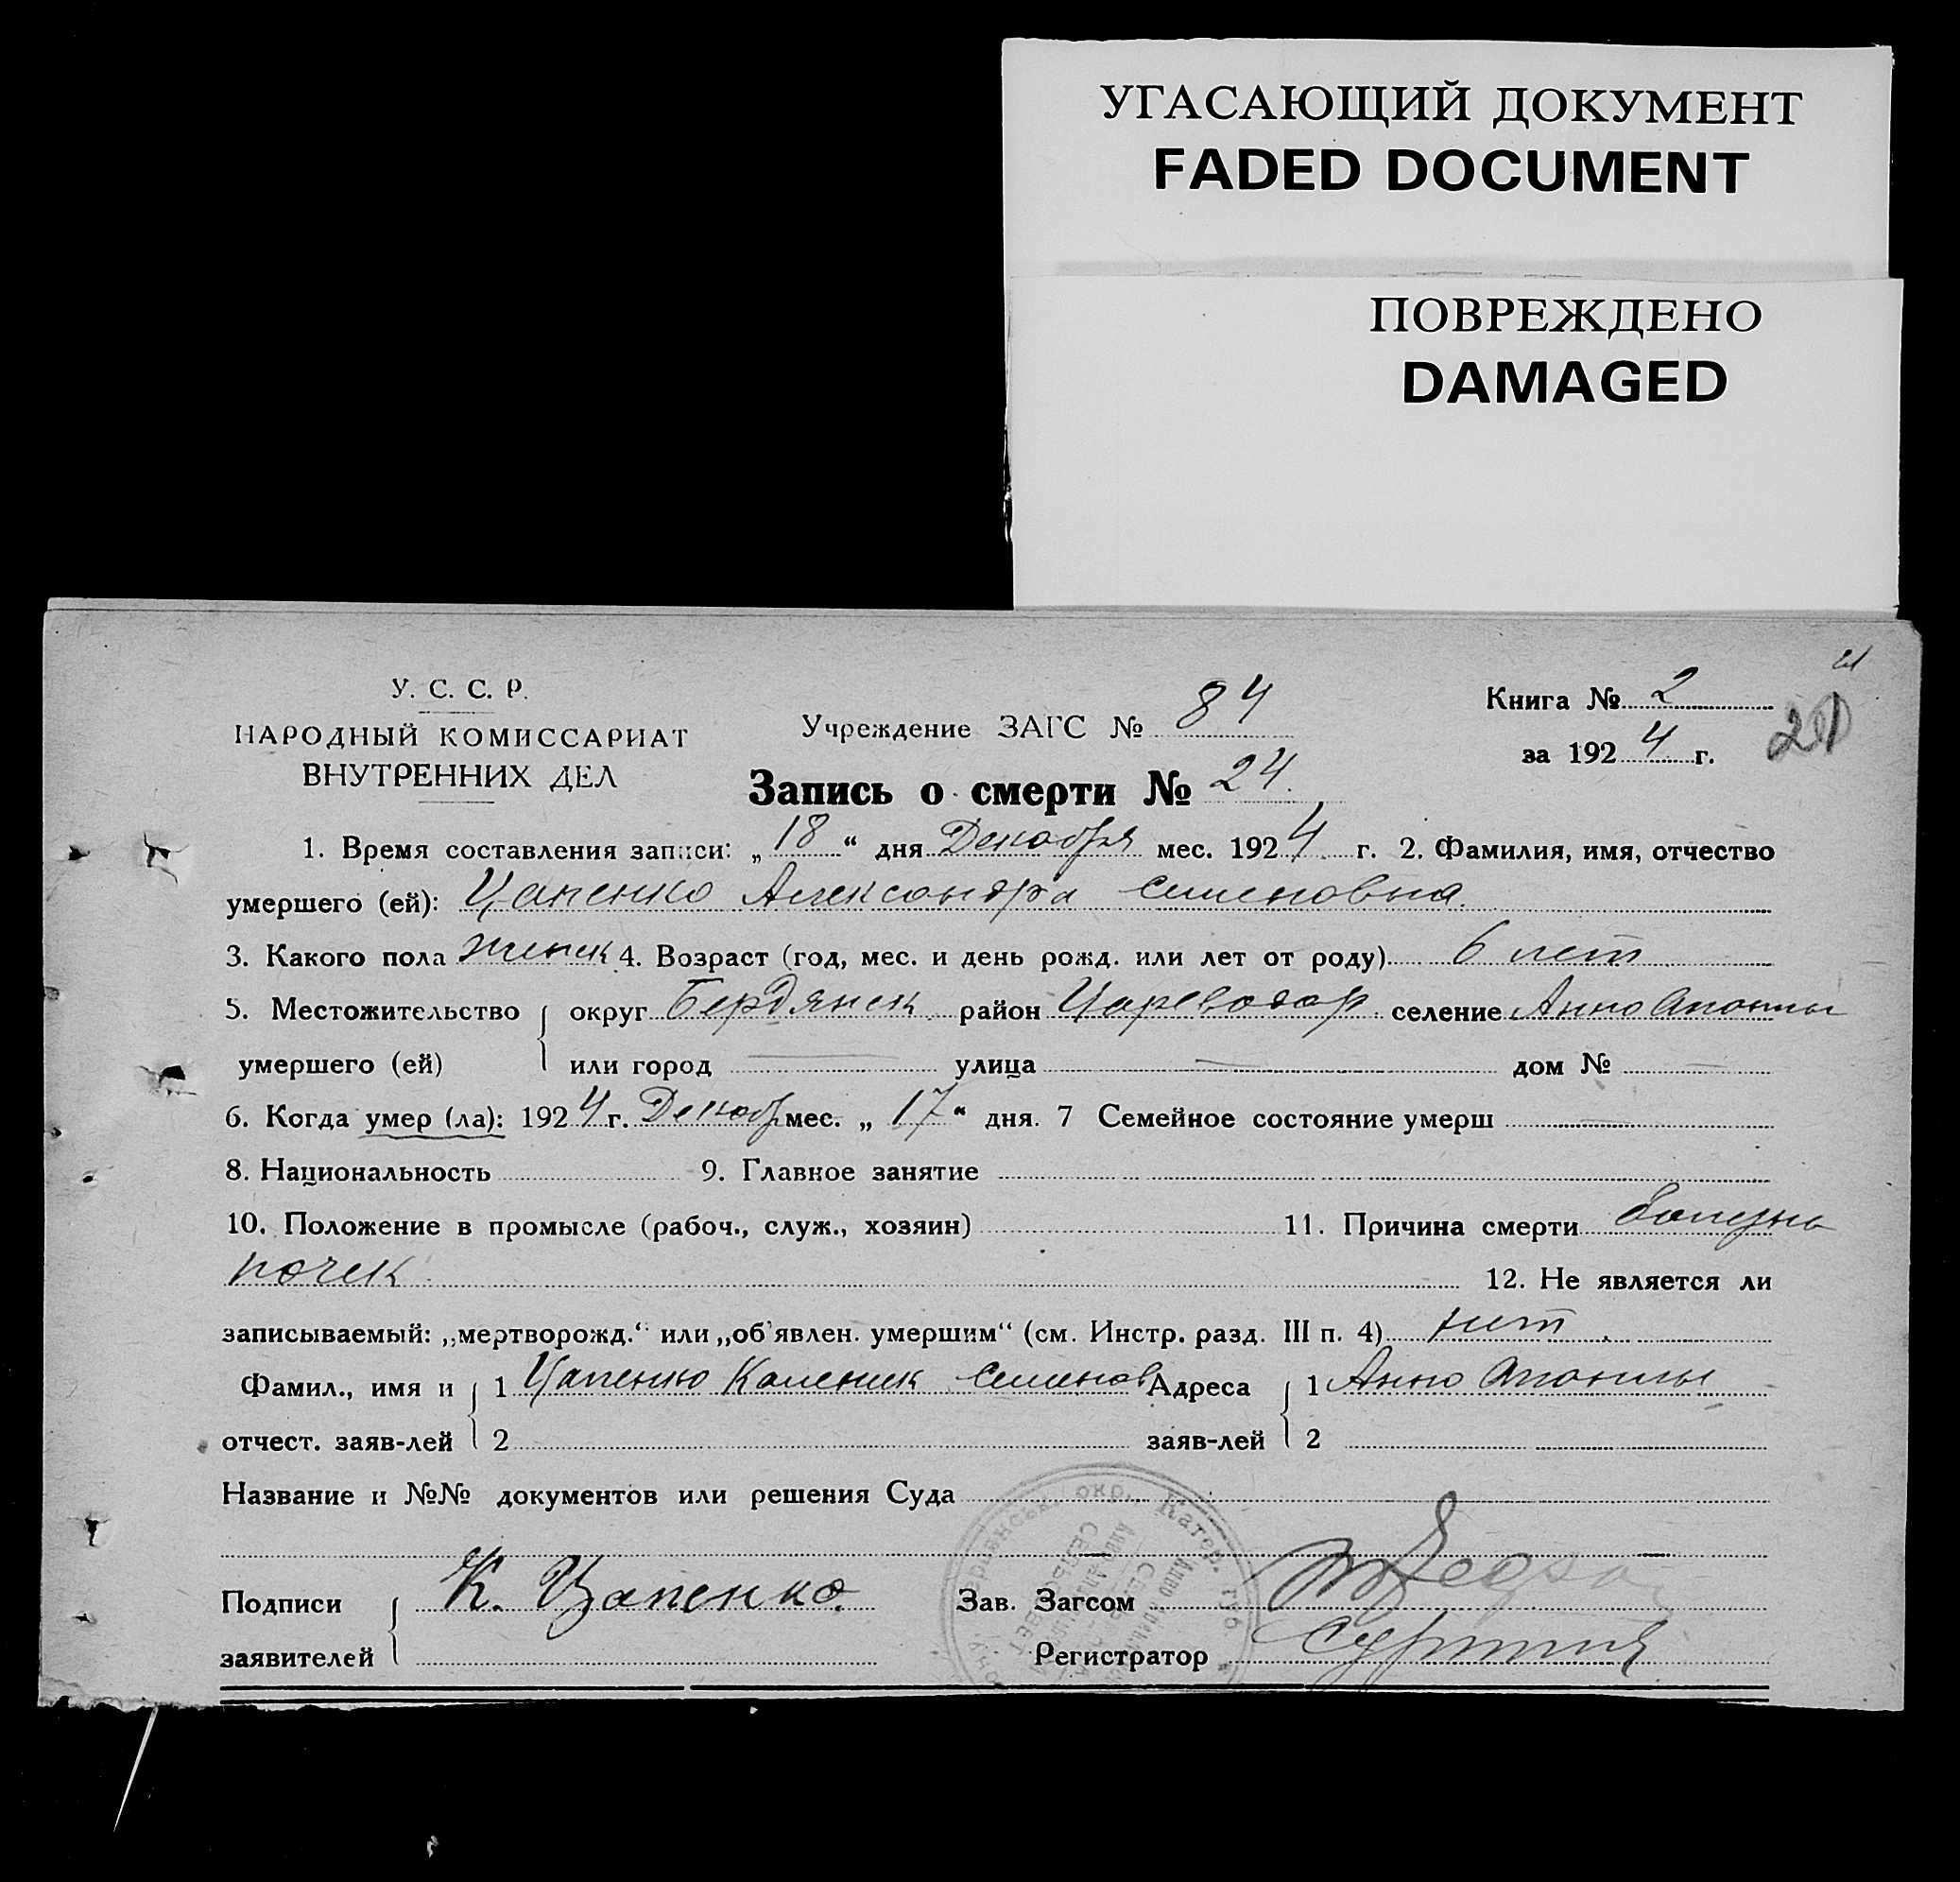 УГАСАЮЩИЙ ДОКУМЕНТ
FADED DOCUMENT
ПОВРЕЖДЕНО
DAMAGED
21
У. С. С. Р.
НАРОДНЫЙ КОМИССАРИАТ
ВНУТРЕННИХ ДЕЛ
Учреждение ЗАГС № 84
Книга № 2
за 1924 г.
Запись о смерти № 24.
1. Время составления записи: „18“ дня Декабря мес. 1924 г. 2. Фамилия, имя, отчество
умершего (ей): Цапенко Александра Семеновна.
3. Какого пола женск 4. Возраст (год, мес. и день рожд. или лет от роду) 6 лет
5. Местожительство округ Бердянск район Цареводар. селение Анно
умершего (ей) или город — улица — дом № —
6. Когда умер (ла): 1924 г. Декабр мес. „17“ дня. 7 Семейное состояние умерш —
8. Национальность 9. Главное занятие
10. Положение в промысле (рабоч., служ., хозяин) 11. Причина смерти болезнь
почек 12. Не является ли
записываемый: „мертворожд.“ или „об'явлен. умершим“ (см. Инстр. разд. III п. 4) нет
Фамил., имя и 1 Цапенко Каленик Семенов Адреса 1 Анно
отчест. заяв-лей 2 заяв-лей 2
Название и №№ документов или решения Суда
Подписи К. Цапенко. Зав. Загсом
заявителей Регистратор
окр. Катер. губ